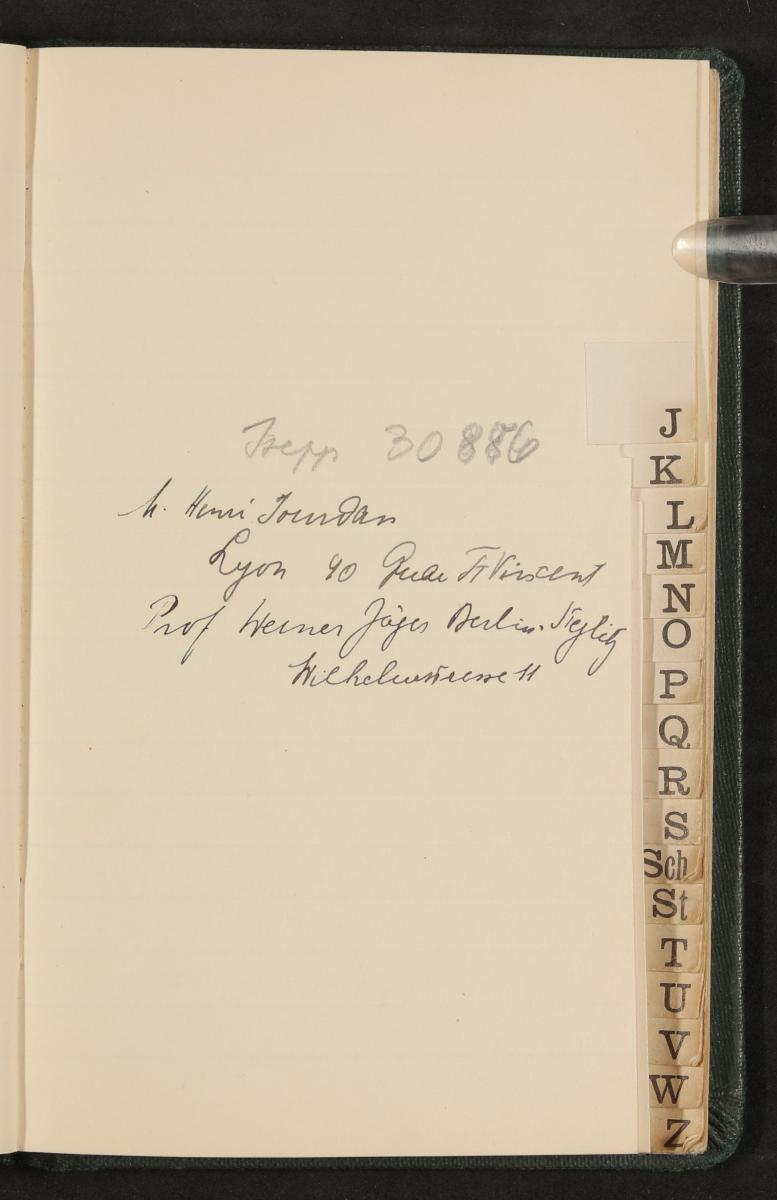 Isepp 30886
M. Henri Jourdan
Lyon 40 Quai St Vincent
Prof Werner Jäger Berlin-Steglitz
Wilhelmstrasse 11
J
K
L
M
N
O
P
Q
R
S
Sch
St
T
U
V
W
Z